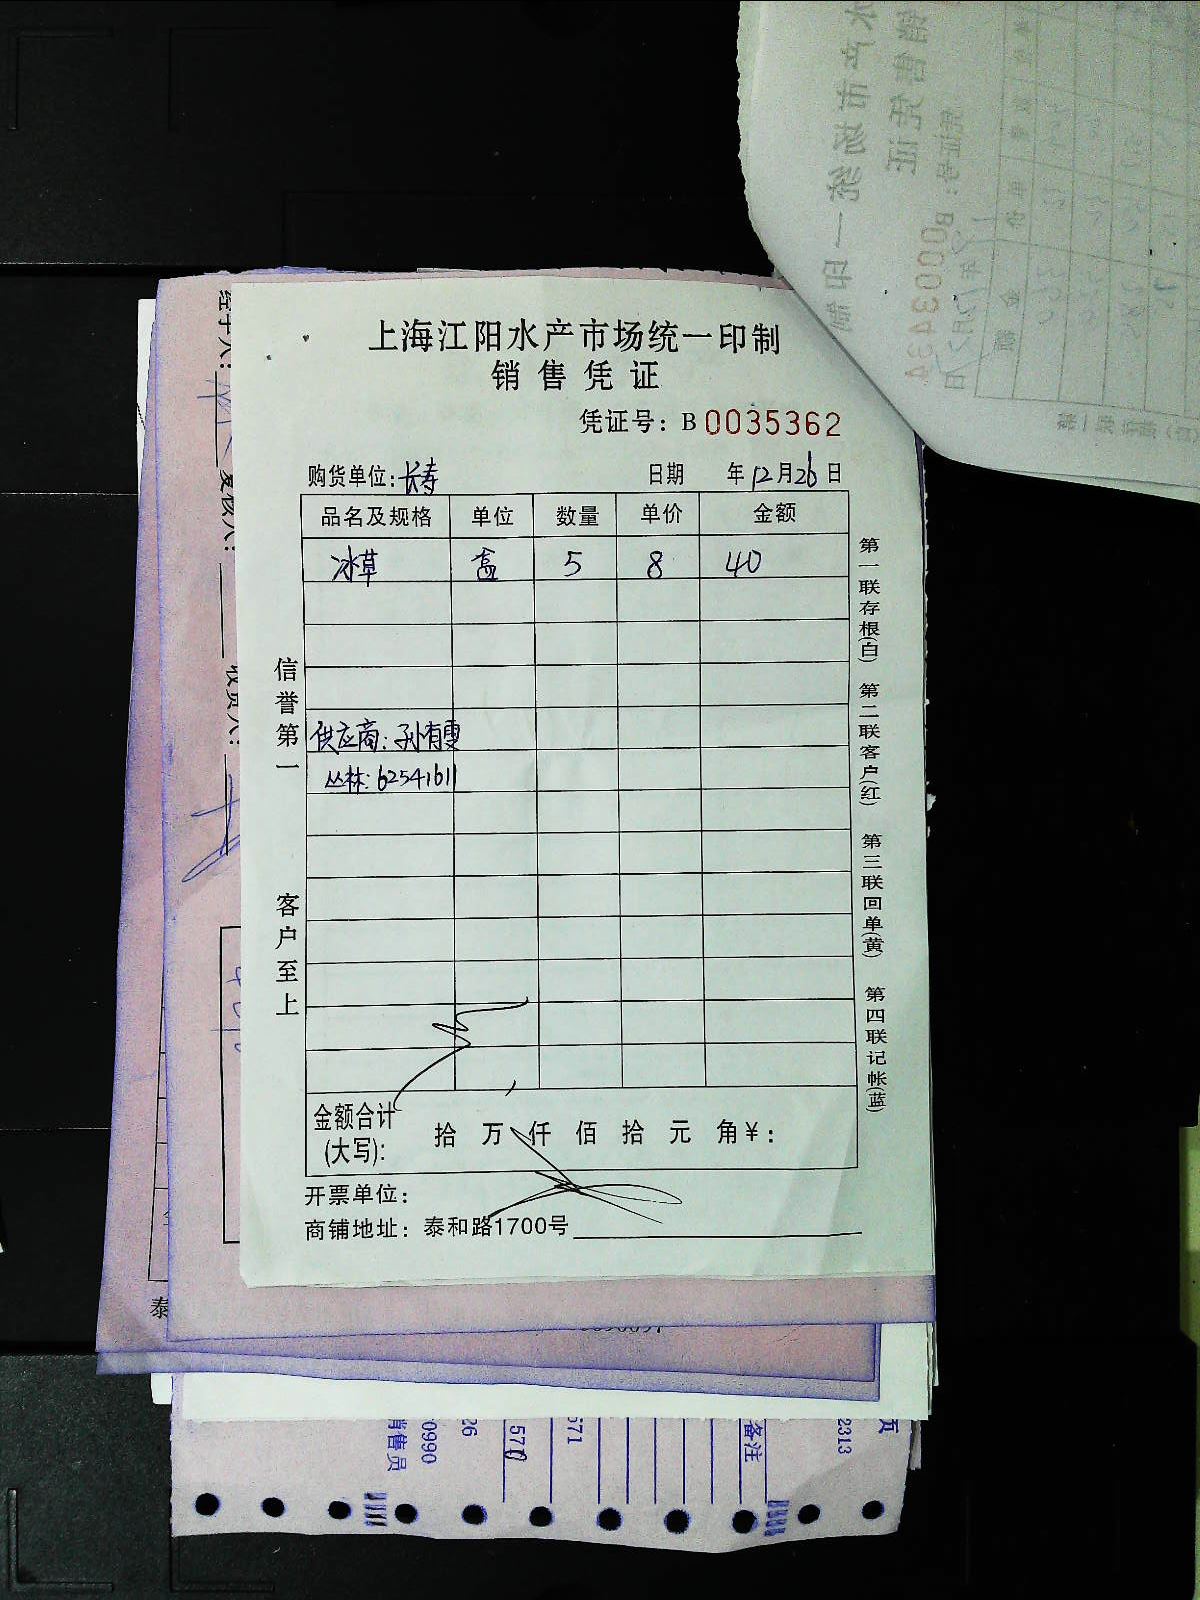 上海江阳水产市场统一印制
销售凭证
凭证号：B 0035362
购货单位:长寿 日期 年12月26日
品名及规格 单位 数量 单价 金额
冰草 盒 5 8 40
供应商:孙有雯
丛林:62541611
信誉第一
客户至上
第一联存根(白) 第二联客户(红) 第三联回单(黄) 第四联记帐(蓝)
金额合计
(大写): 拾 万 仟 佰 拾 元 角¥：
开票单位：
商铺地址：泰和路1700号
经手人:
复核人:
收货人:
泰
备注
销售员
0990
26
570
571
2313
页
B0003434